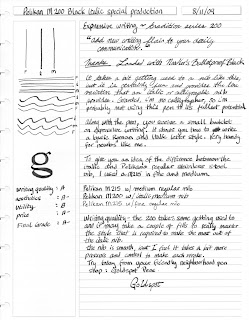 Pelikan M200 Black Italic special production 8/11/09
Expressive writing - tradition series 200
"add new writing flair to your daily
communications."
Loaded with Noodler's Bulletproof Black
It takes a bit getting used to a nib like this,
but it is probably fun and provides the line
variation that an italic or calligraphic nib
provides. Granted, I'm no calligrapher, so I'm
probably not using this pen to its fullest potential
Along with the pen, you receive a small booklet
on expressive writing. It shows you how to write
a basic Roman and italic letter style. Very handy
for newbies like me.
To give you an idea of the difference between the
italic and Pelikan's regular stainless steel
nib, I used a M215 in fine and medium.
Pelikan M215 w/ medium regular nib
Pelikan M200 w/ italic medium nib
Pelikan M215 w/ fine regular nib
g
writing quality: A-
aesthetics: A-
utility: B
price: A-
Final Grade: A-
Writing quality - the 200 takes some getting used to
and it may take a couple of fills to really master
the style that is required to make the most out of
the italic nib.
the nib is smooth, but I feel it takes a bit more
pressure and control to make each stroke.
Try today from your friendly neighborhood pen
shop: Goldspot Pens
Goldspot